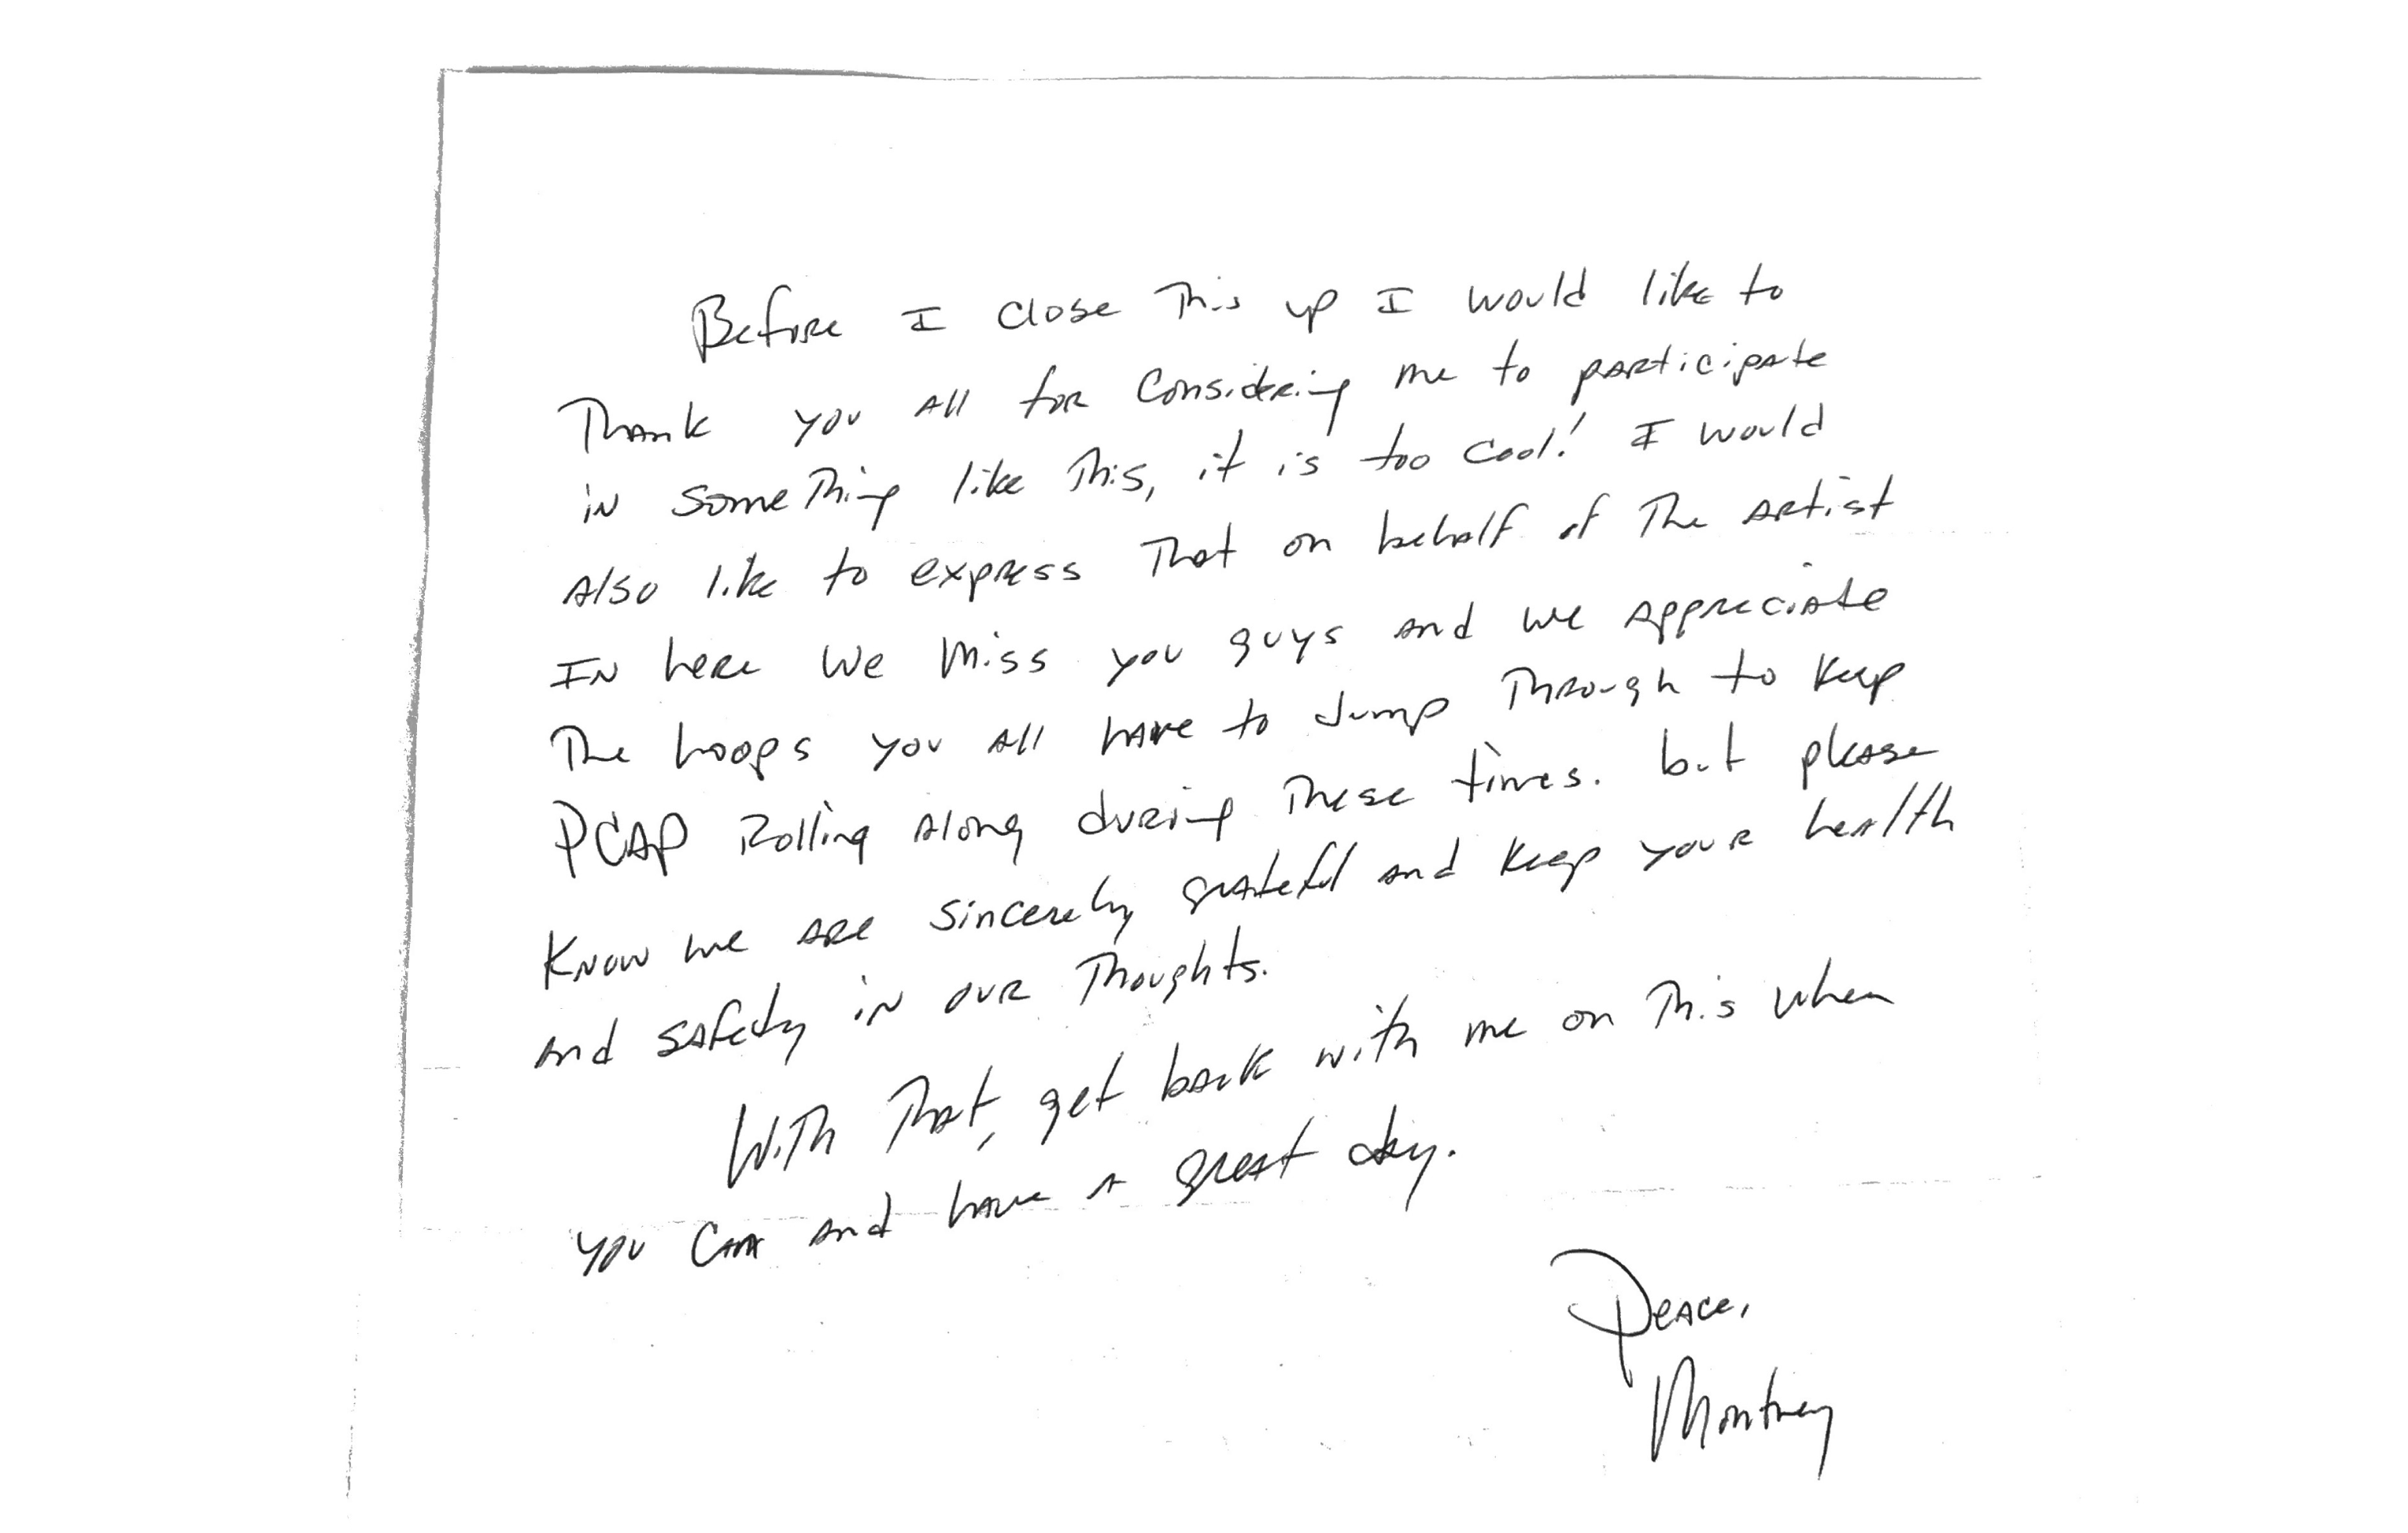 Before I close This up I would like to
Thank you all for Considering me to participate
in someThing like This, it is too cool! I would
Also like to express That on behalf of The Artist
IN here we Miss you guys and we Appreciate
The hoops you all have to Jump Through to keep
PCAP Rolling Along during These times. but please
Know we are sincerely grateful and keep your health
And safety in our Thoughts.
With That, get back with me on This when
you can and have a great day.
Peace,